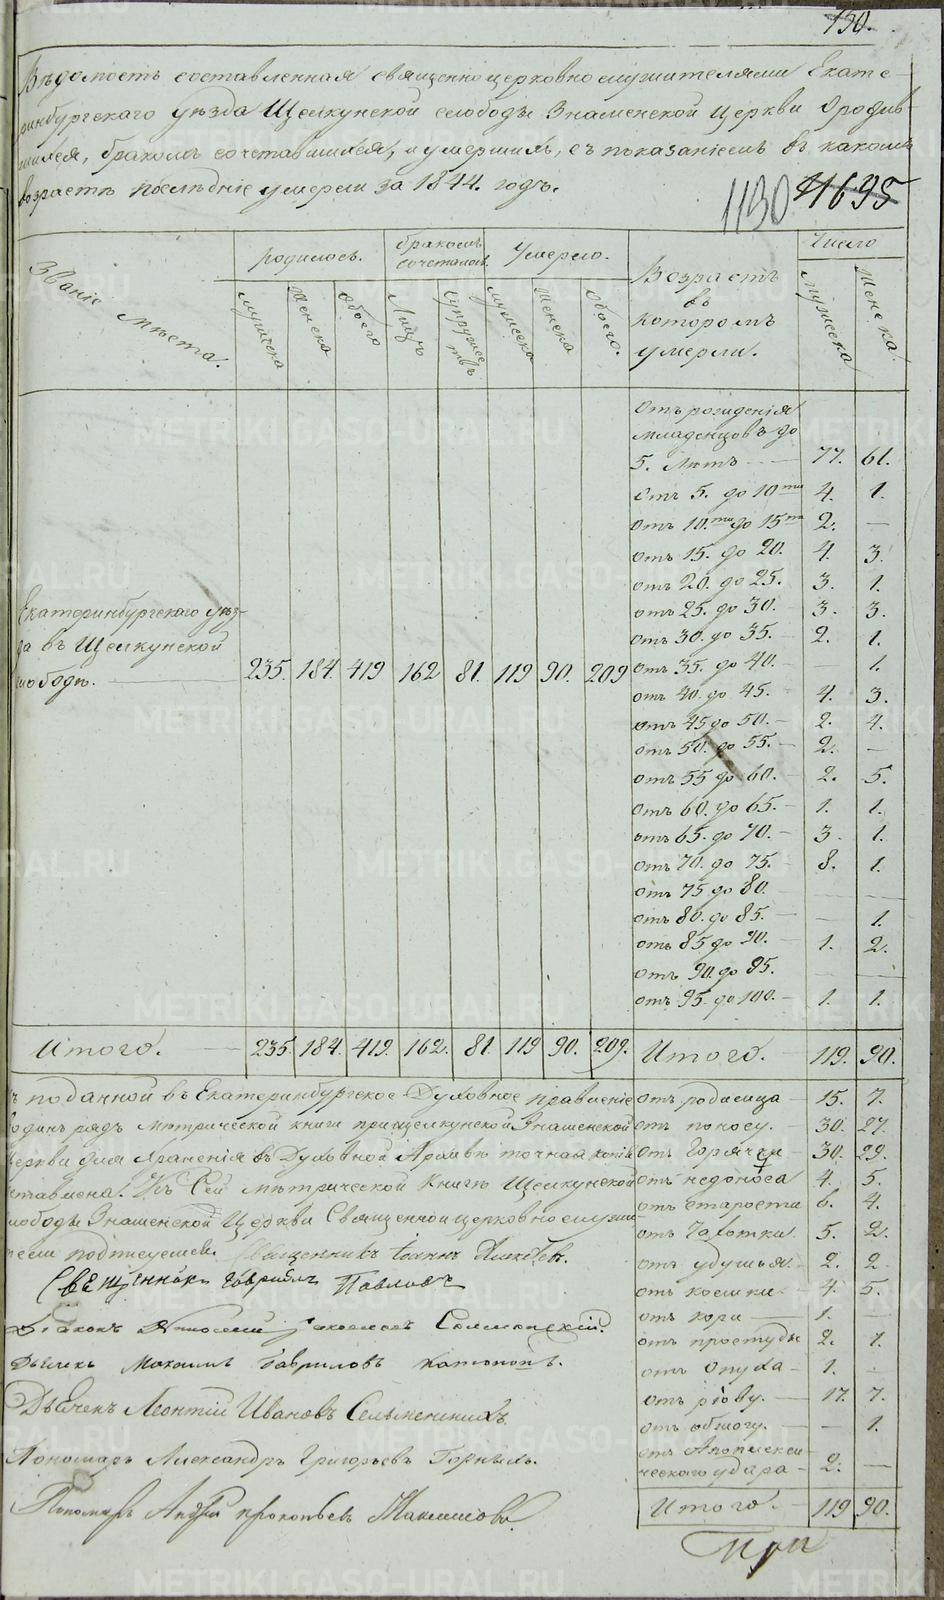 130.
Вѣдомость составленная священноцерковнослужителями Екате-
ринбургскаго уѣзда Щелкунской слободы Знаменской Церкви о родив-
шихся, бракомъ сочетавшихся, и умершихъ, съ показаніемъ въ какомъ
возрастѣ послѣдніе умерли за 1844. годъ.
1130 41695
Званіе мѣста.
родилось.
бракомъ сочеталось.
Умерло.
Возрастъ въ которомъ умерли.
Число
мужеска
женска
обоего
Лицъ
супружествъ
мужеска
женска
обоего.
мужеска
женска.
Отъ рожденія
младенцовъ до
5. лѣтъ 77. 61.
отъ 5. до 10ти 4. 1.
отъ 10.ти до 15ти 2. —
отъ 15. до 20. 4. 3.
отъ 20. до 25. 3. 1.
отъ 25. до 30. 3. 3.
отъ 30. до 35. 2. 1.
Екатеринбургскаго уѣз-
да въ Щелкунской
слободѣ. 235. 184. 419 162 81. 119 90. 209
отъ 35. до 40. — 1.
отъ 40. до 45. 4. 3.
отъ 45 до 50. 2. 4.
отъ 50. до 55. 2. —
отъ 55 до 60. 2. 5.
отъ 60. до 65. 1. 1.
отъ 65. до 70. 3. 1.
отъ 70. до 75. 8. 1.
отъ 75 до 80.
отъ 80. до 85. — 1.
отъ 85 до 90. 1. 2.
отъ 90. до 95.
отъ 95. до 100. 1. 1.
Итого. 235. 184. 419. 162. 81. 119 90. 209. Итого. 119. 90.
поданной въ Екатеринбургское Духовное правленіе
одинъ рядъ метрической книги при Щелкунской Знаменской
церкви для храненія въ Духовной Архивѣ точная копія
оставлена. Къ Сей метрической книгѣ Щелкунской
слободы Знаменской Церкви Священноцерковнослужи-
тели подписуемся. Священникъ Іоаннъ
Священникъ Гавріилъ Павловъ
Діаконъ
Дьячекъ Михаилъ Гавриловъ
Дьячекъ Леонтій Ивановъ
Пономарь Александръ Григорьевъ
Пономарь Андрей Прокопьевъ
отъ родимца 15. 7.
отъ поносу. 30. 27.
отъ Горячки 30. 29.
отъ недоноса 4. 5.
отъ старости 6. 4.
отъ чахотки 5. 2.
отъ удушья 2. 2.
отъ кошки 4. 5.
отъ кори 1.
отъ простуды 2. 1.
отъ опуха 1.
отъ рѣву. 17. 7.
отъ обжогу. — 1.
отъ Апоплекси-
ческаго удара 2. —
Итого. 119 90.
При
METRIKI.GASO-URAL.RU